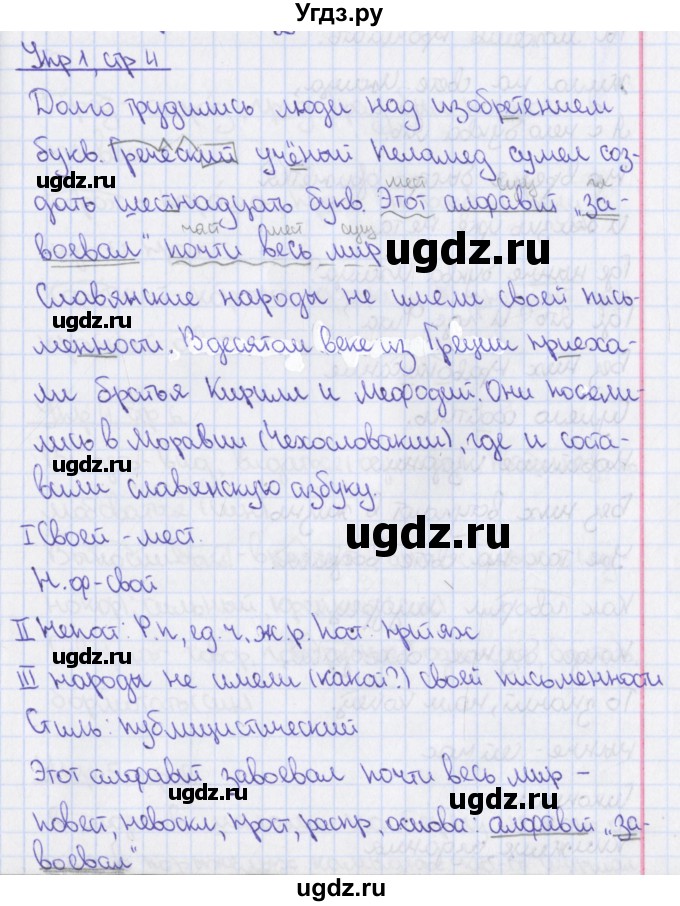 Угдз.ру
Упр 1, стр 4
Долго трудились люди над изобретением
букв. Греческий учёный Паламед сумел соз-
ugdz.ru
ugdz.ru
мест сущ гл
дать шестнадцать букв. Этот алфавит „за-
част мест сущ
воевал" почти весь мир
ugdz.ru
Славянские народы не имели своей пись-
ugdz.ru
менности. В десятом веке из Греции приеха-
ли братья Кирилл и Мефодий. Они посели-
лись в Моравии (Чехословакии), где и соста-
ugdz.ru
вили славянскую азбуку.
I Своей - мест.
ugdz.ru
Н.ф-свой
II Непост: Р.п, ед.ч, ж.р. Пост: притяж
ugdz.ru
III народы не имели (какой?) своей письменности
Стиль: публицистический
Этот алфавит завоевал почти весь мир -
ugdz.ru
ugdz.ru
повест, невоскл, прост, распр, основа: алфавит „за-
воевал"
ugdz.ru